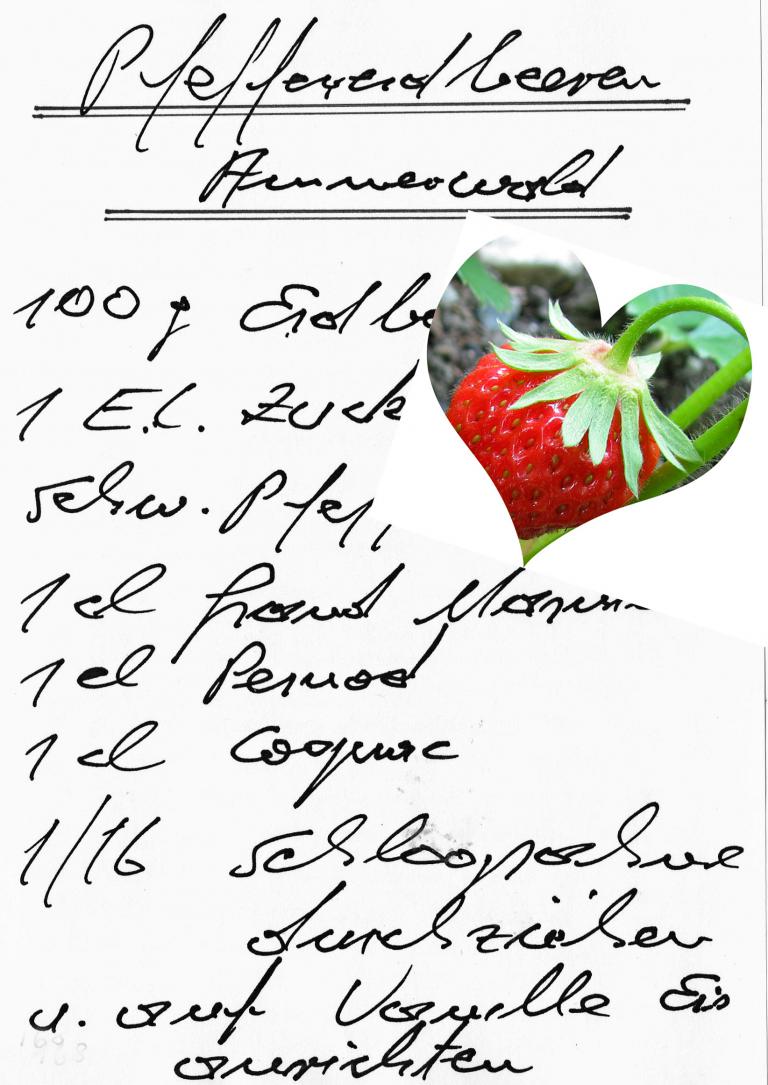 Pfeffererdbeeren
Ammerwald
100 g Erdbe
1 E.l. Zuck
schw. Pfeff
1 cl Grand Marni
1 cl Pernod
1 cl Cognac
1/16 Schlagsahne
durchziehen
u. auf Vanille Eis
anrichten